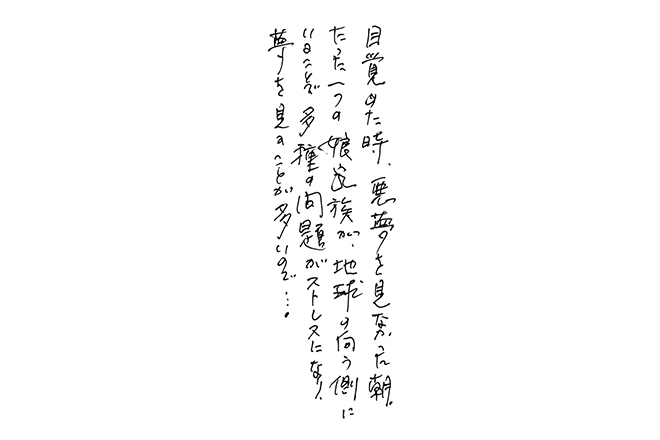 目覚めた時、悪夢を見なかった朝。
たった一つの娘家族が、地球の向う側に
いることで多種の問題がストレスになり、
夢を見ることが多いので…。